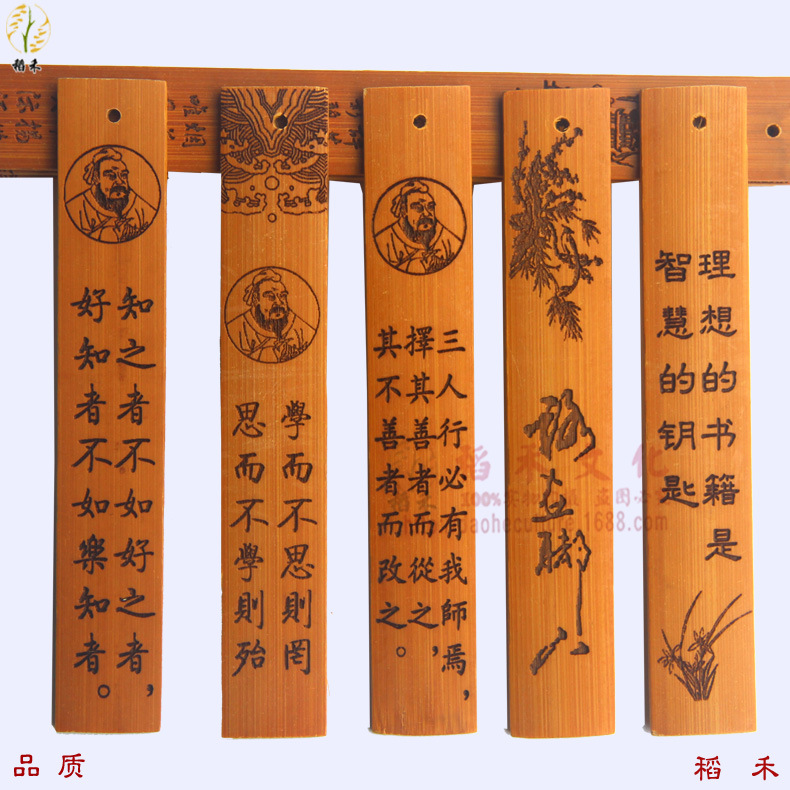 稻禾
知之者不如好之者,
好知者不如樂知者。
學而不思則罔
思而不學則殆
三人行必有我師焉,
擇其善者而從之,
其不善者而改之。
路在脚下
理想的书籍是
智慧的钥匙
稻禾文化
daoheculture.1688.com
品质
稻禾